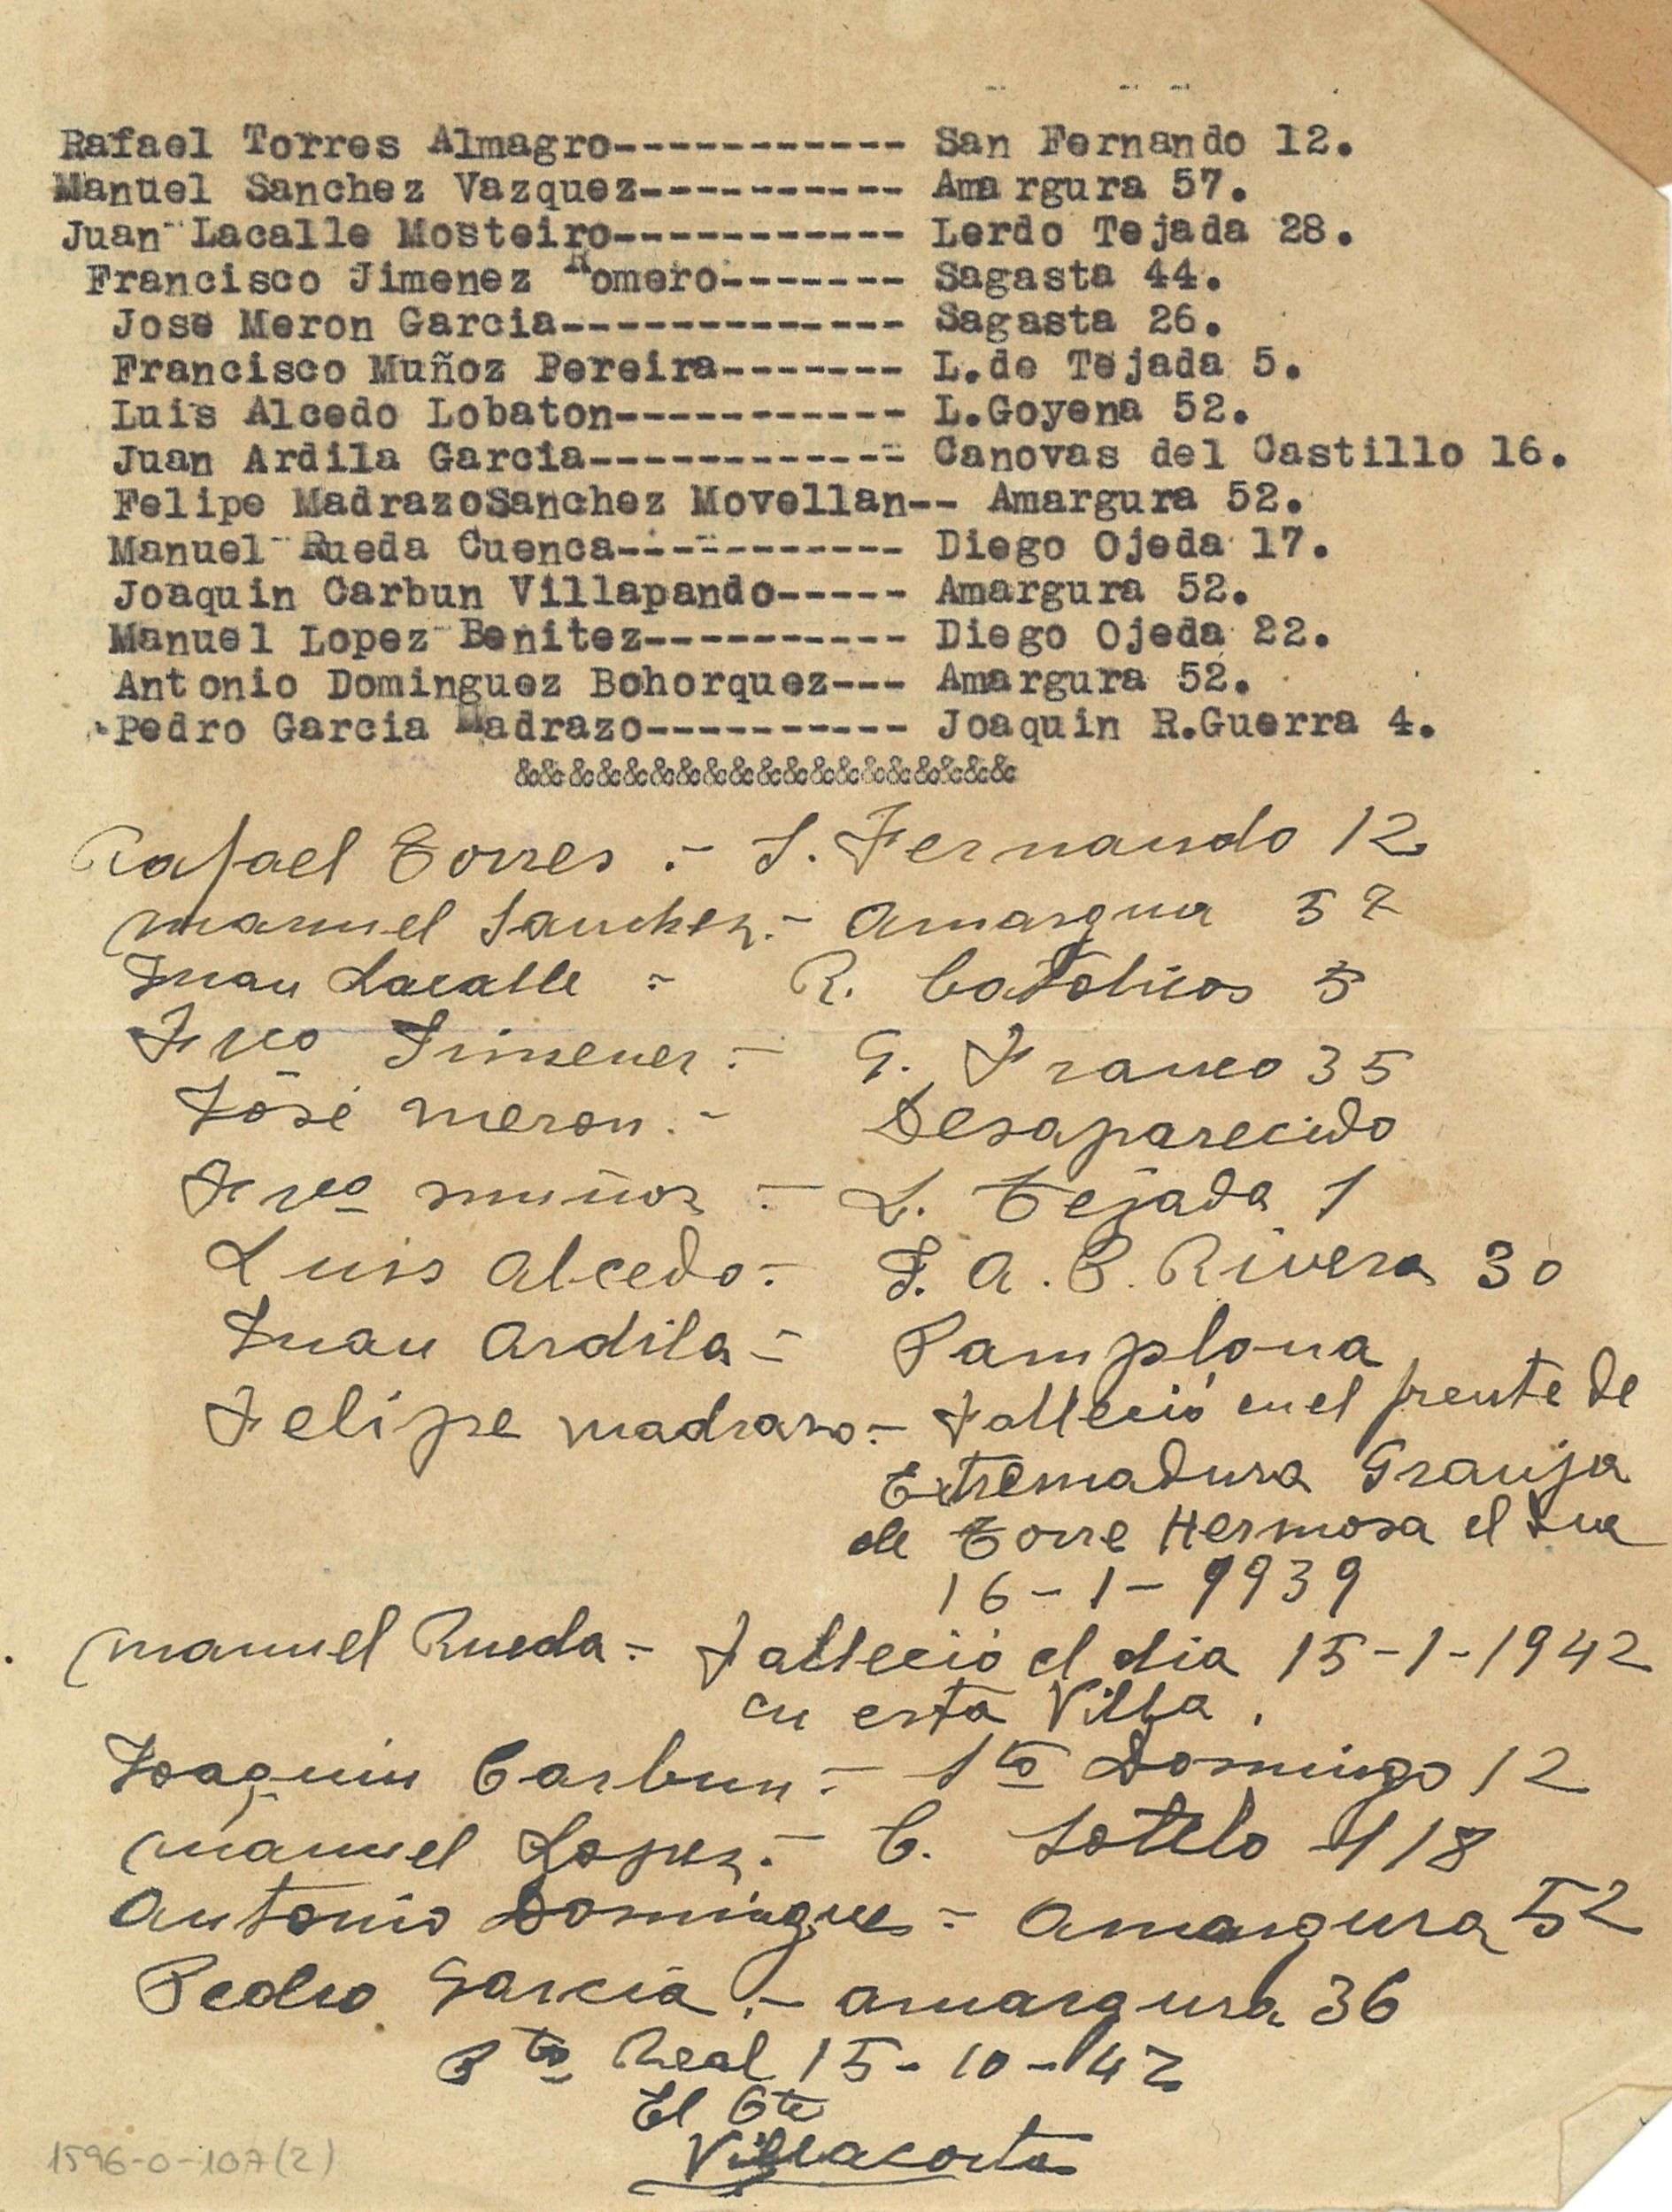 Rafael Torres Almagro----------- San Fernando 12.
Manuel Sanchez Vazquez---------- Amargura 57.
Juan Lacalle Mosteiro----------- Lerdo Tejada 28.
Francisco Jimenez Romero------- Sagasta 44.
Jose Meron Garcia------------- Sagasta 26.
Francisco Muñoz Pereira------- L.de Tejada 5.
Luis Alcedo Lobaton----------- L.Goyena 52.
Juan Ardila Garcia------------ Canovas del Castillo 16.
Felipe MadrazoSanchez Movellan-- Amargura 52.
Manuel Rueda Cuenca----------- Diego Ojeda 17.
Joaquin Carbun Villapando----- Amargura 52.
Manuel Lopez Benitez---------- Diego Ojeda 22.
Antonio Dominguez Bohorquez--- Amargura 52.
Pedro Garcia Madrazo---------- Joaquin R.Guerra 4.
&&&&&&&&&&&&&&&&&&&
Rafael Torres .- S. Fernando 12
Manuel Sanchez.- Amargura 57
Juan Lacalle .- R. Catolicos 5
Frco Jimenez .- G. Franco 35
José Meron .- Desaparecido
Frco Muñoz .- L. Tejada 1
Luis Alcedo.- J. A. P. Rivera 30
Juan Ardila.- Pamplona
Felipe Madrazo.- Falleció en el frente de
Extremadura Granja
de Torre Hermosa el dia
16-1-1939
Manuel Rueda.- Falleció el dia 15-1-1942
en esta Villa.
Joaquin Carbun.- Sto Domingo 12
Manuel Lopez.- C. Sotelo 118
Antonio Domingues.- Amargura 52
Pedro Garcia.- Amargura 36
Pto Real 15-10-42
El Cte
Villacorta
1596-0-107(2)